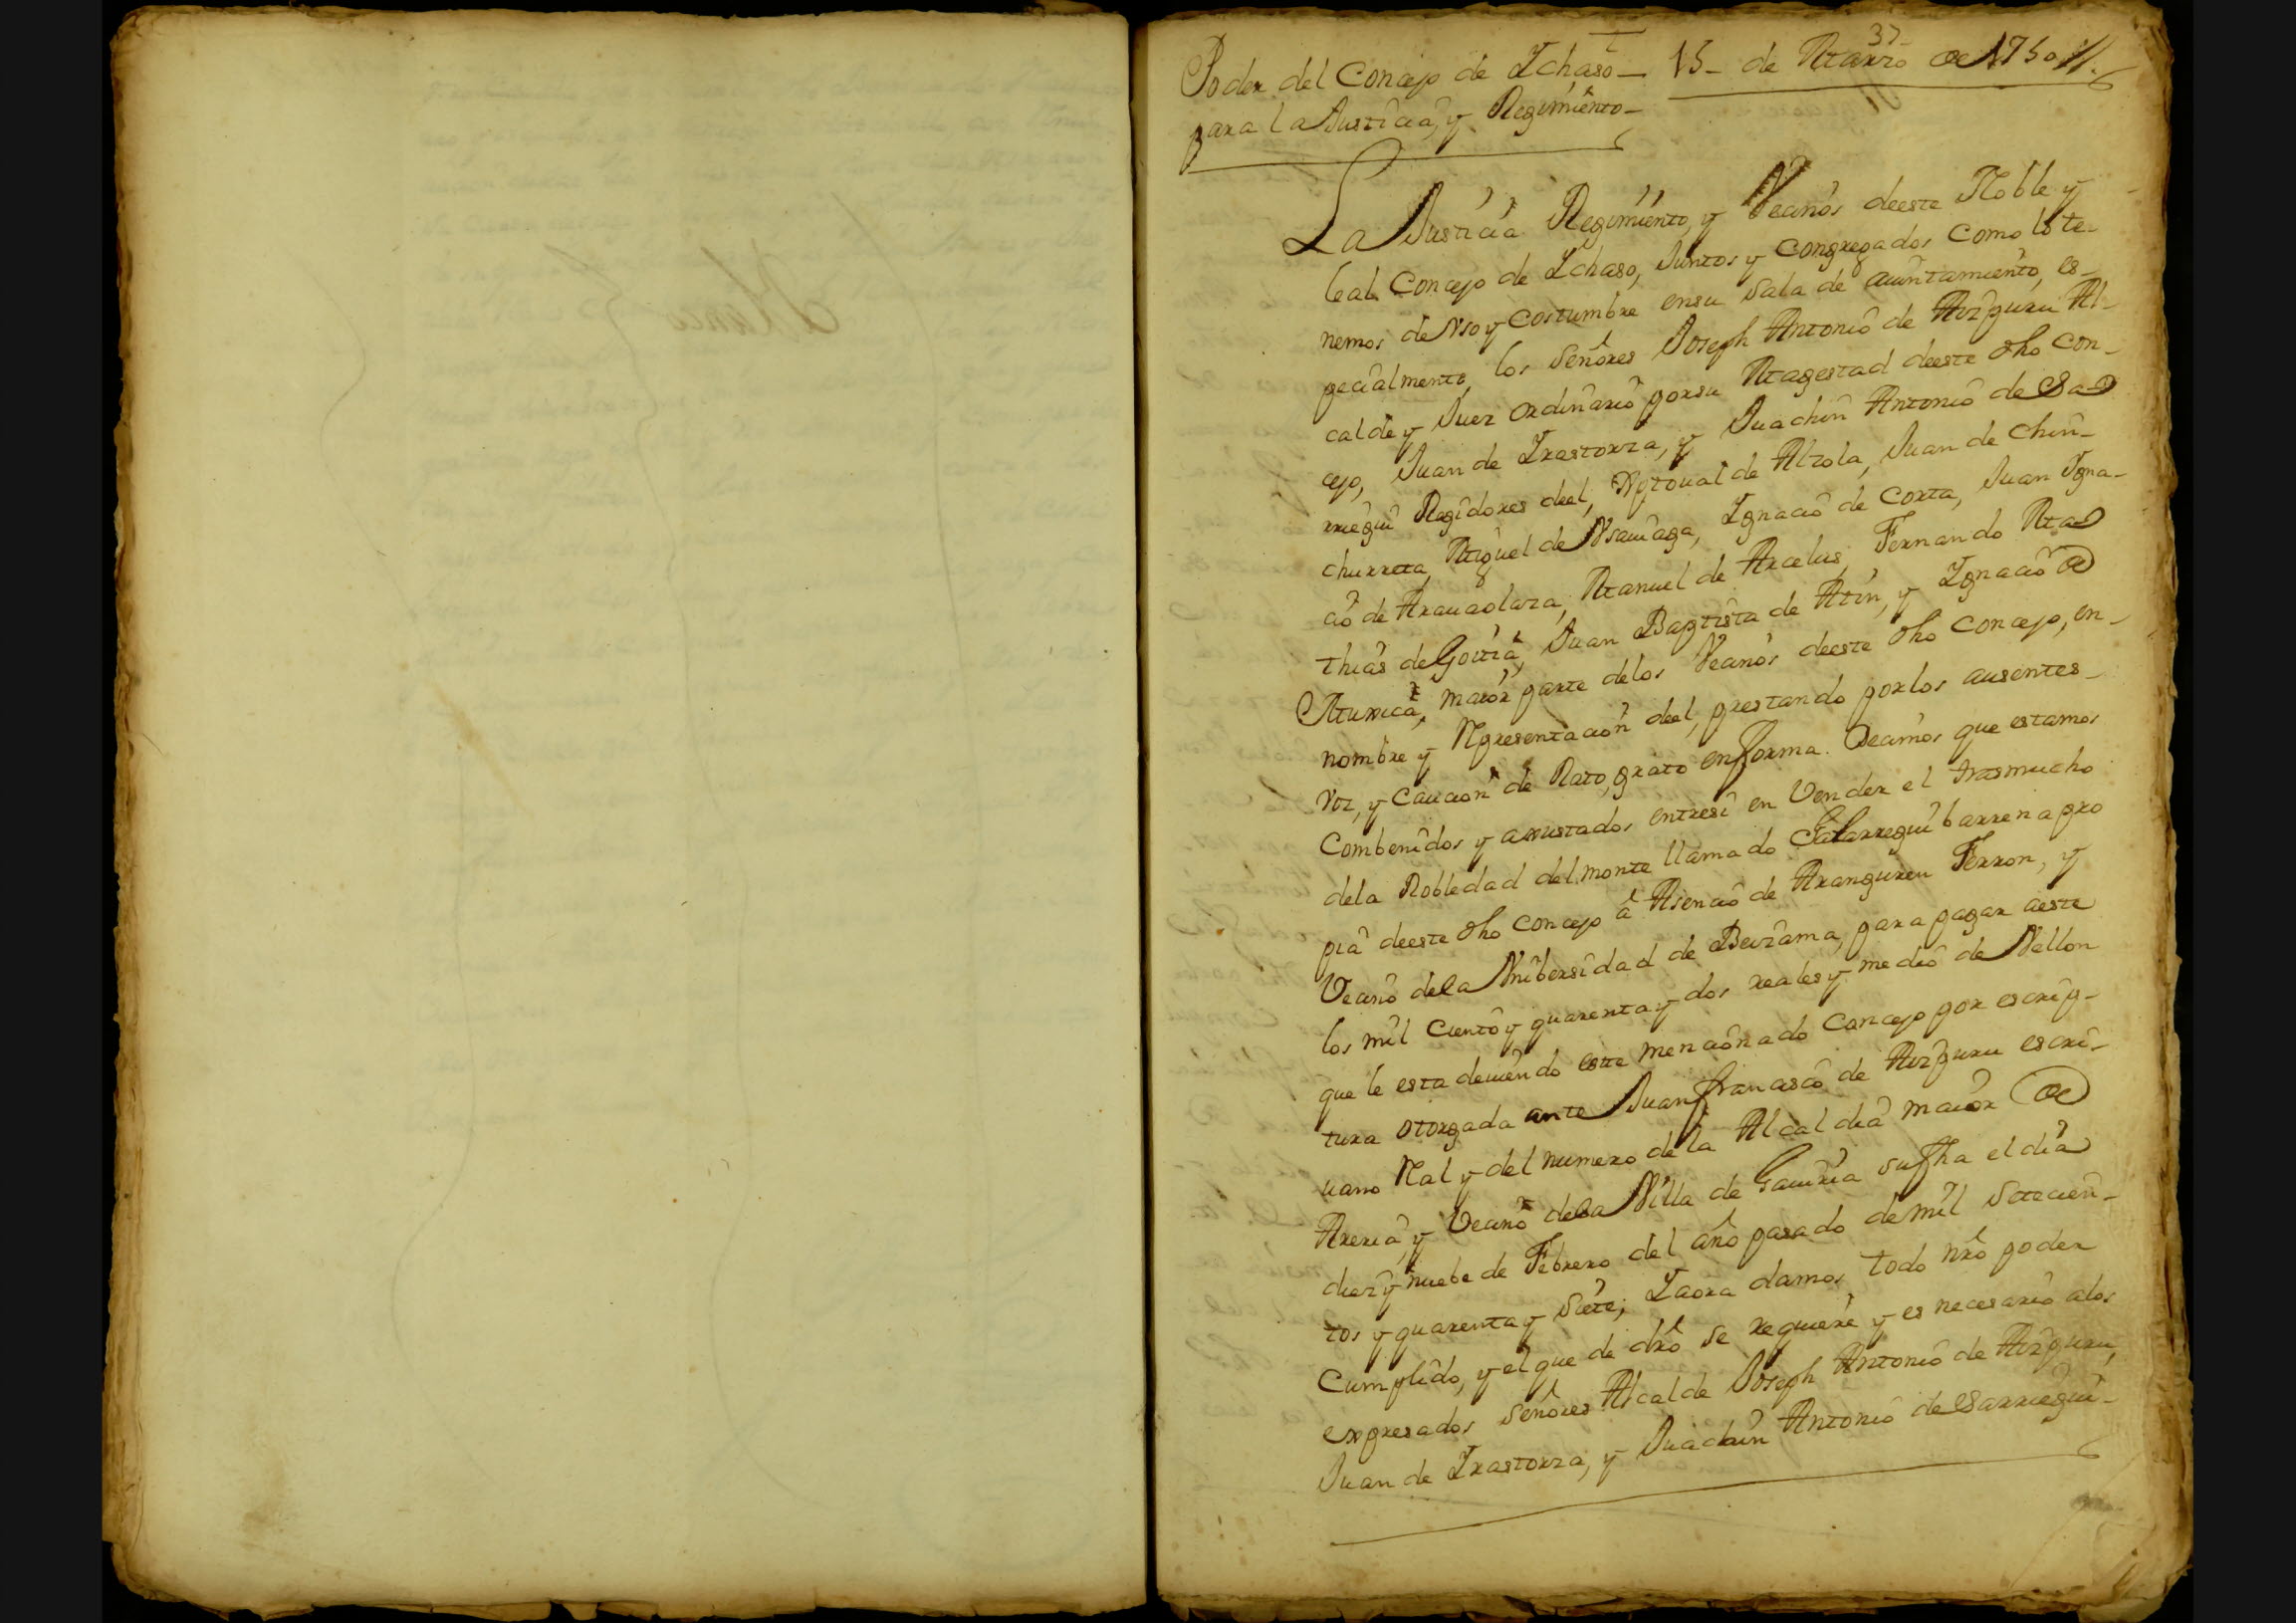 37
Poder del Concejo de Ichaso — 15 - de Marzo de 1750 //.
para la Justicia, y Regimiento —
La Justicia Regimiento, y Vecinos deeste Noble y
Leal Concejo de Ichaso, Juntos y Congregados Como lo te-
nemos de Vso y Costumbre ensu Sala de auintamiento, es-
pecialmente, los Señores Joseph Antonio de Aizpuru Al-
calde y Juez ordinario porsu Magestad deeste dho Con-
cejo, Juan de Irastorza, y Juachin Antonio de Sa
rriegui Regidores deel, de Alzola, Juan de Chin-
churreta, Miguel de Vsauiaga, Ignacio de Corta, Juan Igna-
cio de Arauaolaza, Manuel de Arcelus, Fernando Ma
thias de Goitia, Juan Baptista de Atin, y Ignacio de
Munica, maior parte delos Vecinos deeste dho Concejo, en-
nombre y Representacion deel, prestando porlos ausentes
Voz, y Caucion de Rato, grato enforma. Decimos que estamos
Combenidos y axustados entresi en Vender el trasmucho
dela Robledad del monte llamado Galarreguibarrena pro
pia deeste dho Concejo â Asencio de Aranguren Ferron, y
Vecino dela Vnibersidad de Beizama, para pagar aeste
los mil Ciento y quarenta y dos reales y medio de Vellon
que le esta deuiendo este mencionado Concejo por escrip-
tura otorgada ante Juan francisco de Aizpuru escri-
uano Real y del numero de la Alcaldia maior de
Areria, y Vecino dela Villa de Gauiria su fha el dia
diez y nuebe de Febrero del año pasado de mil Setecien-
tos y quarenta y Siete; Iaora damos todo nrô poder
Cumplido, y el que de drô se requiere y es necesario alos
expresados Señores Alcalde Joseph Antonio de Aizpuru,
Juan de Irastorza, y Juachin Antonio de Sarriegui -